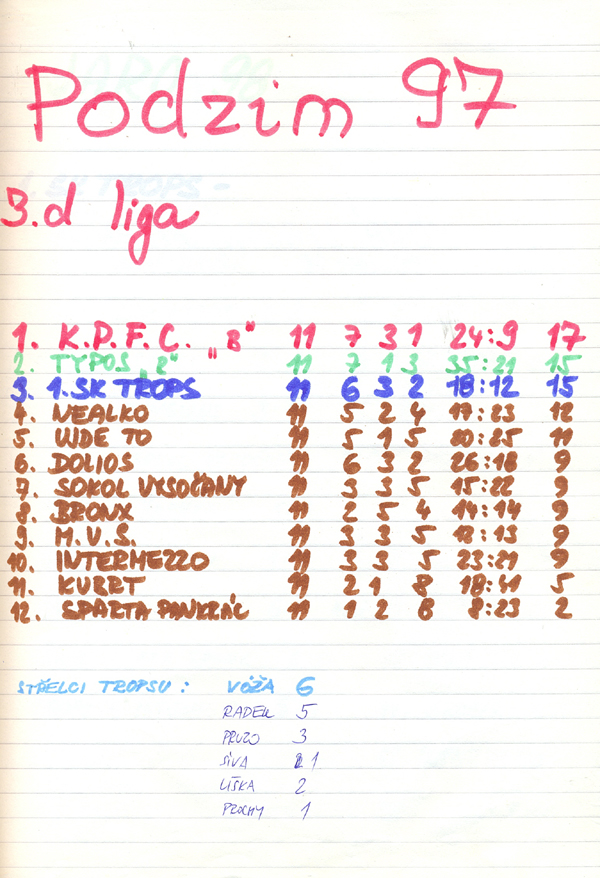 Podzim 97
3.d liga
1. K.P.F.C. „B" 11 7 3 1 24:9 17
2. TYPOS „B" 11 7 1 3 35:21 15
3. 1.SK TROPS 11 6 3 2 18:12 15
4. NEALKO 11 5 2 4 17:23 12
5. UJDE TO 11 5 1 5 20:25 11
6. DOLIOS 11 6 3 2 26:18 9
7. SOKOL VYSOČANY 11 3 3 5 15:22 9
8. BRONX 11 2 5 4 14:14 9
9. M.V.S. 11 3 3 5 12:13 9
10. INTERMEZZO 11 3 3 5 23:21 9
11. KUBRT 11 2 1 8 18:41 5
12. SPARTA PANKRÁC 11 1 2 8 8:23 2
STŘELCI TROPSU : VÓŽA 6
RADEK 5
PRUZO 3
SIVA 1
LIŠKA 2
PROCHY 1